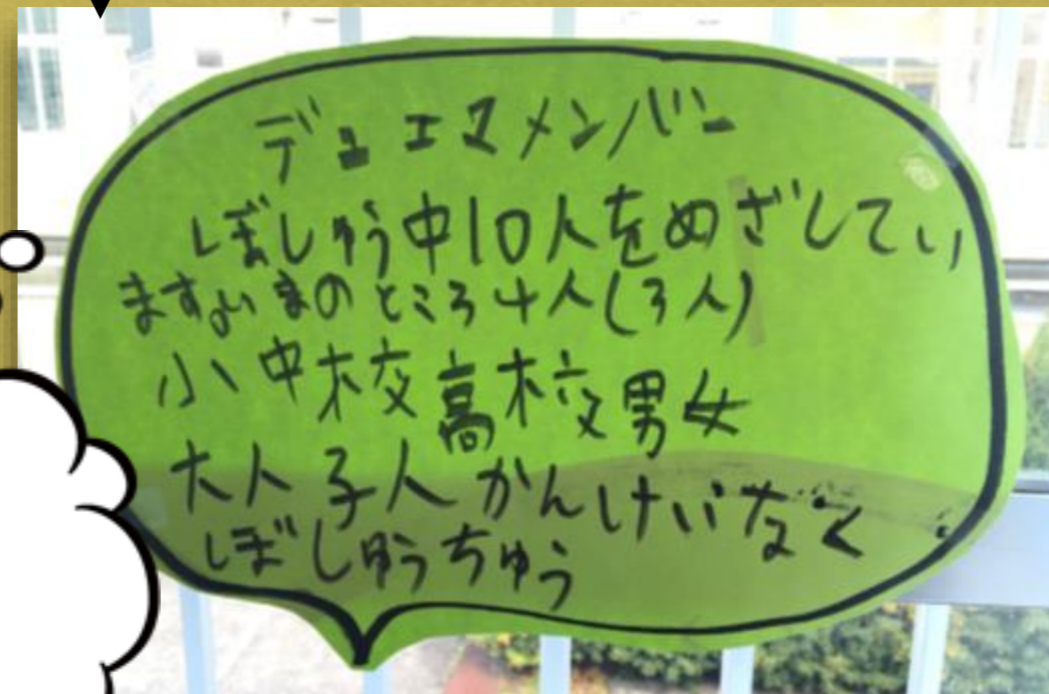 デュエマメンバー
ぼしゅう中10人をめざしてい
ます。いまのところ4人(3人)
小中校高校男女
大人子人かんけいなく
ぼしゅうちゅう